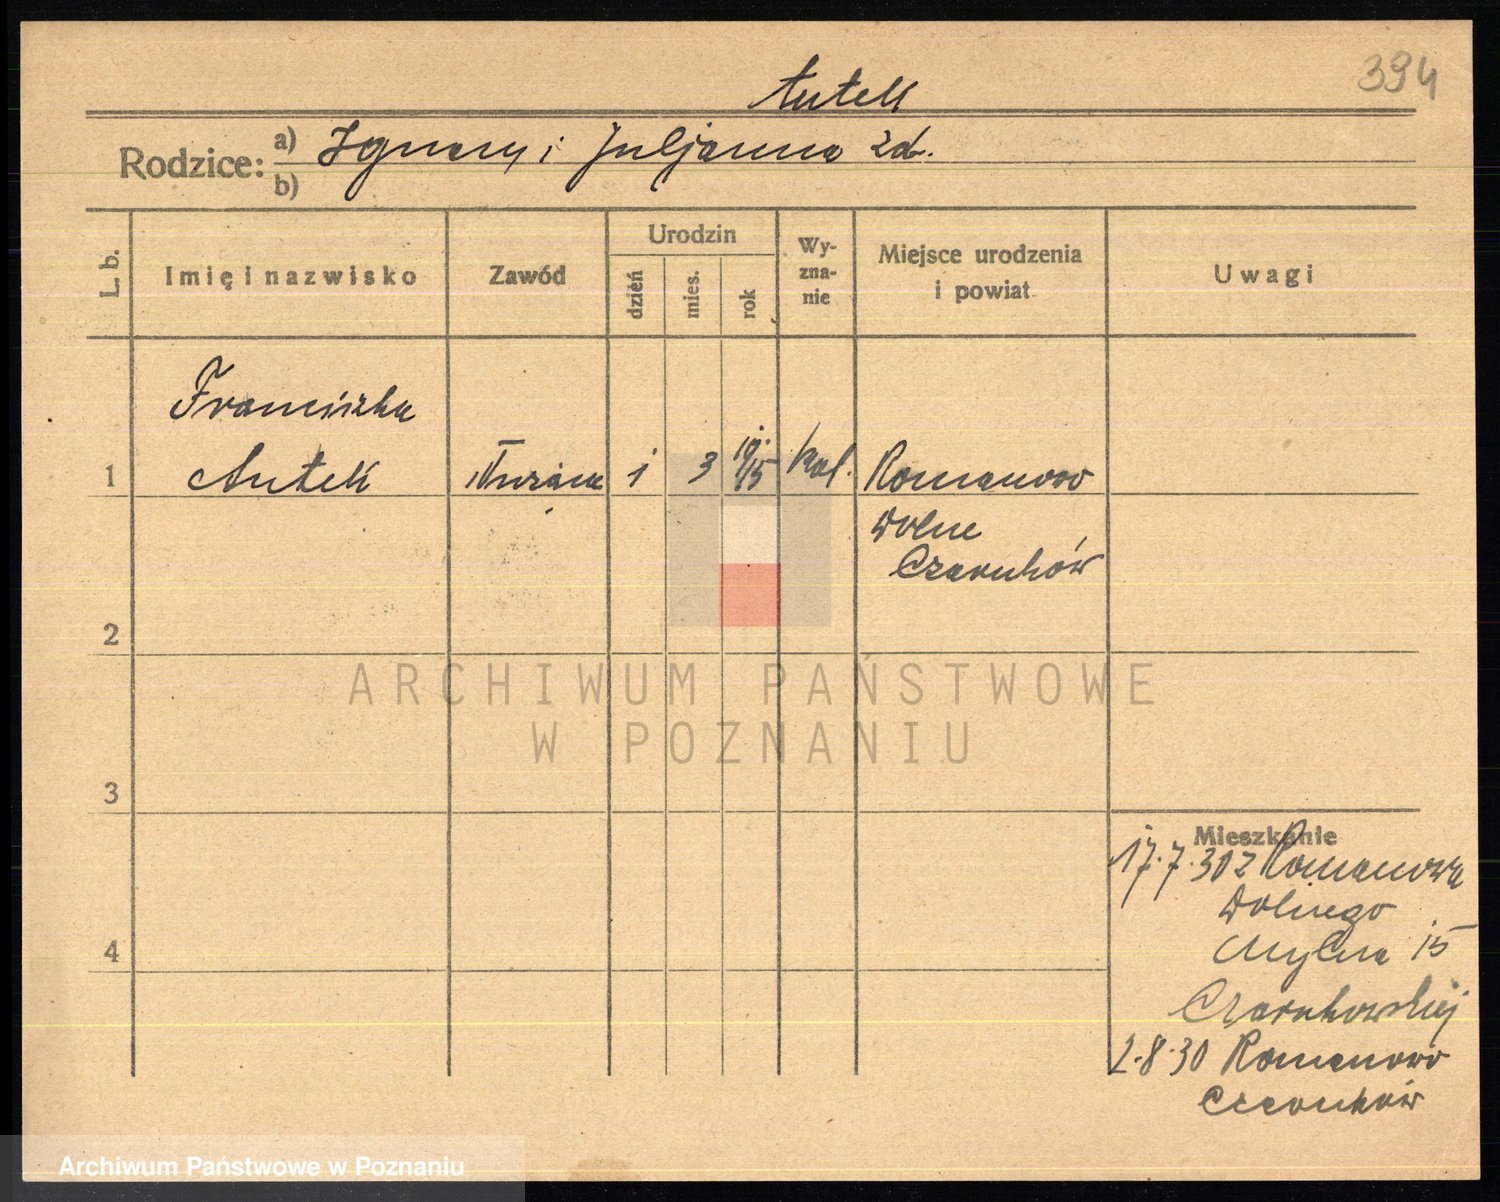 394
Antek
Rodzice: a) Ignacy i Juljanna zd.
b)
L. b.
Imię i nazwisko
Zawód
Urodzin
dzień
mies.
rok
Wy-
zna-
nie
Miejsce urodzenia
i powiat
Uwagi
Franciszka
1 Antek 1 3 19/15 kat. Romanowo
Dolne
Czarnków
2
ARCHIWUM PAŃSTWOWE
W POZNANIU
3
Mieszkanie
17.7.30 z Romanowa
Dolnego
Mylna 15
4
Czarnkowskiej
2.8.30 Romanowo
Czarnków
Archiwum Państwowe w Poznaniu